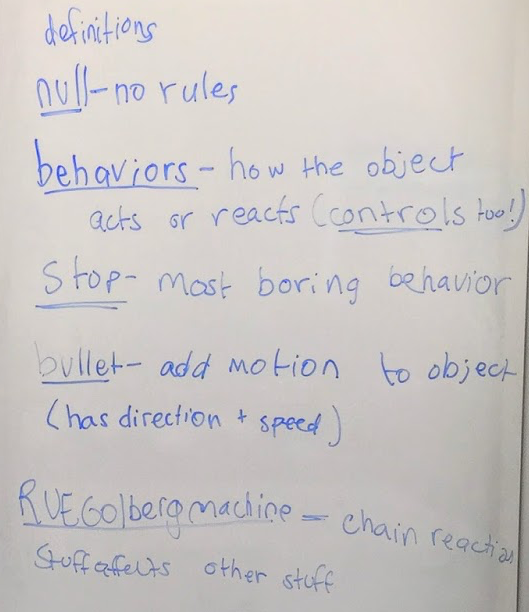 definitions
null - no rules
behaviors - how the object
acts or reacts (controls too!)
Stop - most boring behavior
bullet - add motion to object
(has direction + speed)
RUEGolberg machine = chain reaction
Stuff affects other stuff